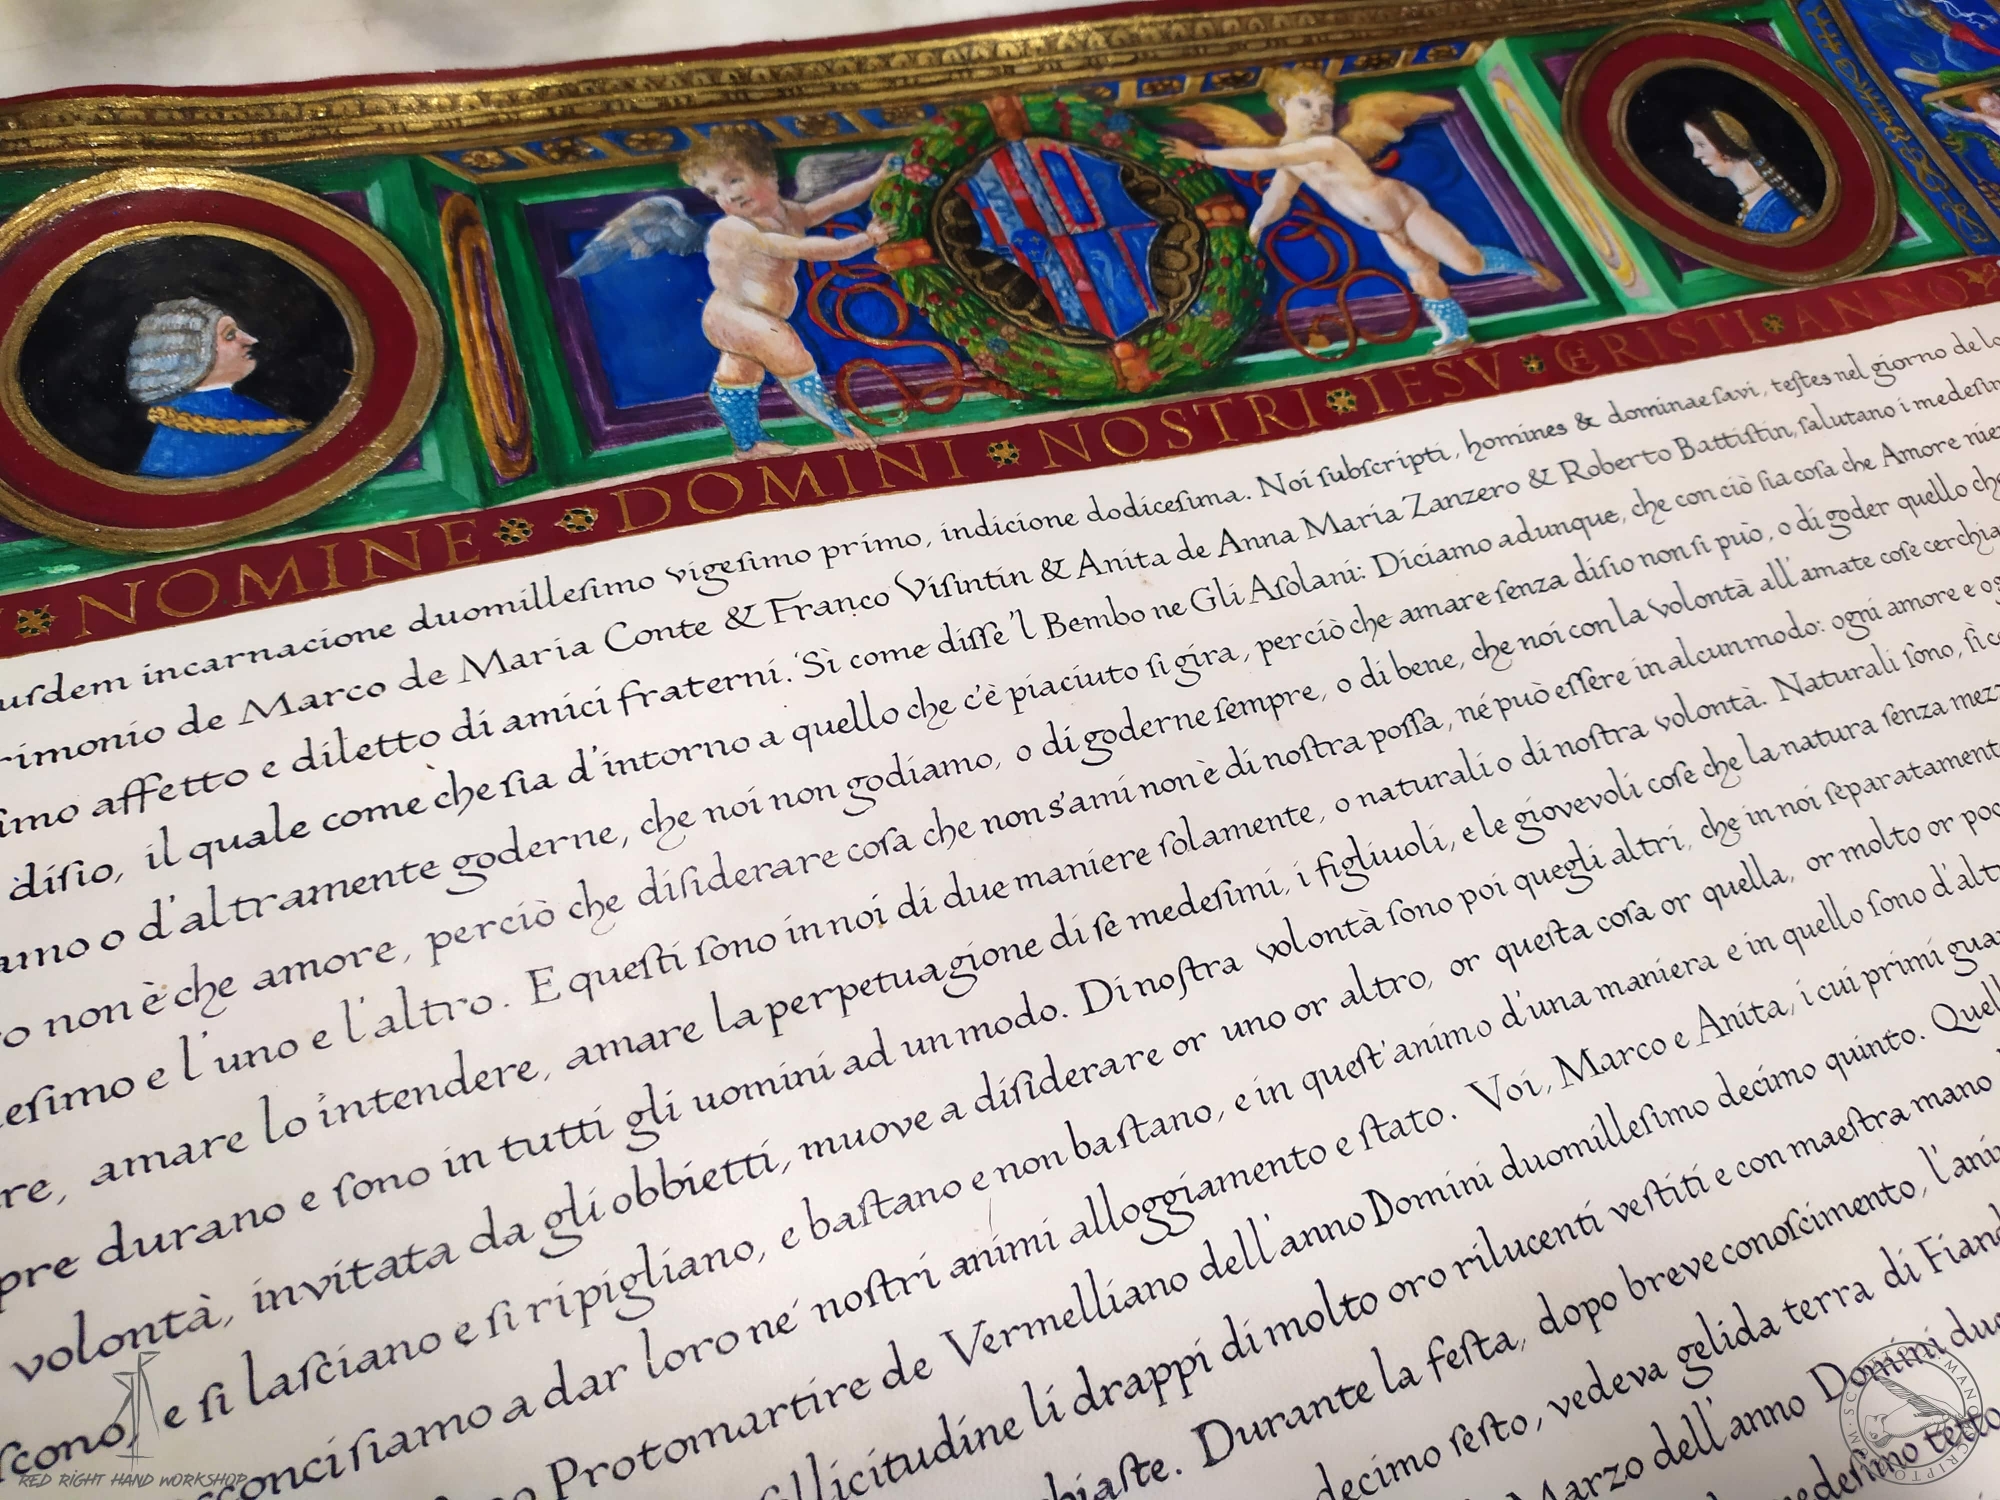 NOMINE DOMINI NOSTRI IESV CRISTI ANNO
incarnacione duomilleſimo vigeſimo primo, indicione dodiceſima. Noi ſubſcripti, homines & dominae ſavi, teſtes nel giorno de lo
rimonio de Marco de Maria Conte & Franco Viſintin & Anita de Anna Maria Zanzero & Roberto Battiſtin, ſalutano i medeſim
ſimo affetto e diletto di amici fraterni. Sì come diſſe 'l Bembo ne Gli Aſolani: Diciamo adunque, che con ciò ſia coſa che Amore nien
diſio, il quale come che ſia d'intorno a quello che c'è piaciuto ſi gira, perciò che amare ſenza diſio non ſi può, o di goder quello che
amo o d'altramente goderne, che noi non godiamo, o di goderne ſempre, o di bene, che noi con la volontà all'amate coſe cerchia
ro non è che amore, perciò che diſiderare coſa che non s'ami non è di noſtra poſſa, né può eſſere in alcun modo: ogni amore e og
eſimo e l'uno e l'altro. E queſti ſono in noi di due maniere ſolamente, o naturali o di noſtra volontà. Naturali ſono, ſì c
re, amare lo intendere, amare la perpetuagione di ſe medeſimi, i figliuoli, e le giovevoli coſe che la natura ſenza mezz
pre durano e ſono in tutti gli uomini ad un modo. Di noſtra volontà ſono poi quegli altri, che in noi ſeparatamente
volontà, invitata da gli obbietti, muove a diſiderare or uno or altro, or queſta coſa or quella, or molto or poc
ſcono, e ſi laſciano e ſi ripigliano, e baſtano e non baſtano, e in queſt'animo d'una maniera e in quello ſono d'altr
conciſiamo a dar loro né noſtri animi alloggiamento e ſtato. Voi, Marco e Anita, i cui primi guar
Protomartire de Vermelliano dell'anno Domini duomilleſimo decimo quinto. Quell
ollicitudine li drappi di molto oro rilucenti veſtiti e con maeſtra mano
chiaſte. Durante la feſta, dopo breve conoſcimento, l'anim
decimo ſeſto, vedeva gelida terra di Fiand
Marzo dell'anno Domini duo
medeſimo tetto
RED RIGHT HAND WORKSHOP